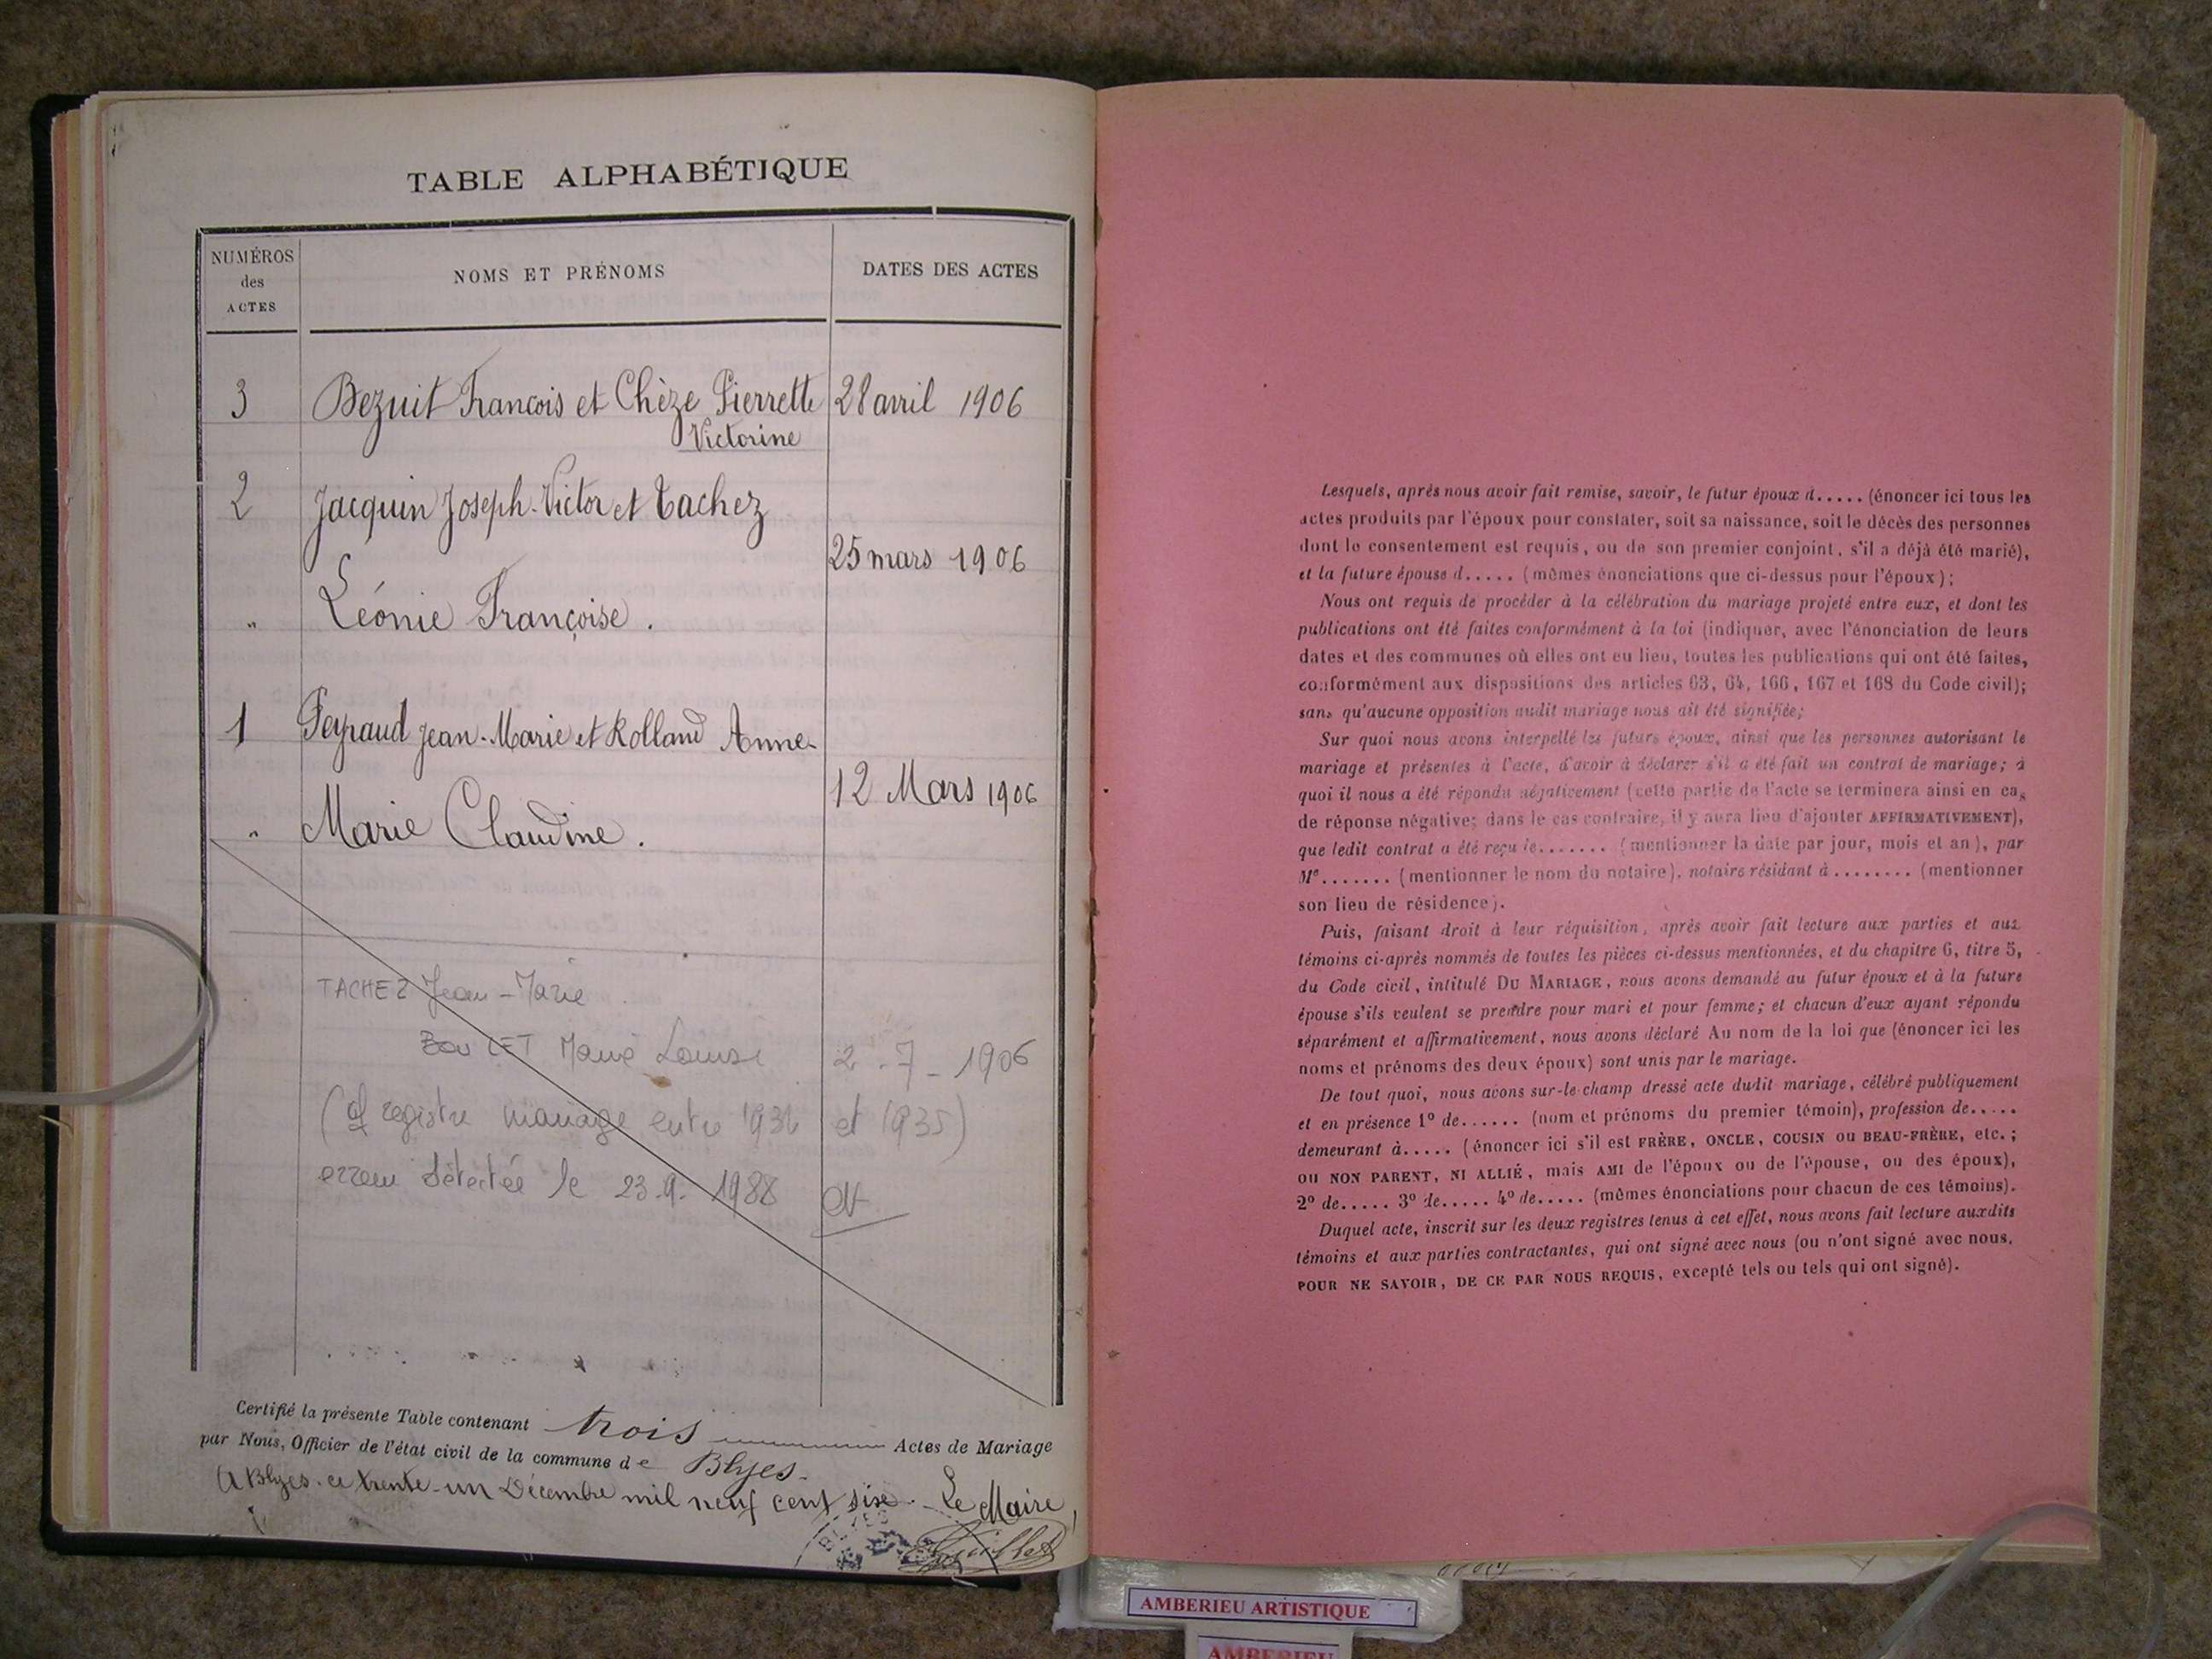 TABLE ALPHABÉTIQUE
NUMÉROS des ACTES
NOMS ET PRÉNOMS
DATES DES ACTES
3 Bezuit Francois et Chèze Pierrette 28 avril 1906
Victorine
2 Jacquin Joseph-Victor et Tachez
25 mars 1906
" Léonie Françoise.
1 Peyraud Jean-Marie et Rolland Anne-
12 Mars 1906
" Marie Claudine.
TACHEZ Jean-Marie
BOULET Marie Louise 2-7-1906
(cf registre mariage entre 1934 et 1935)
erreur détectée le 23.9.1988
Certifié la présente Table contenant trois Actes de Mariage
par Nous, Officier de l'état civil de la commune de Blyes.
A Blyes. ce trente-un Décembre mil neuf cent six. Le Maire,
BLYES
Lesquels, après nous avoir fait remise, savoir, le futur époux d..... (énoncer ici tous les
actes produits par l'époux pour constater, soit sa naissance, soit le décès des personnes
dont le consentement est requis, ou de son premier conjoint, s'il a déjà été marié),
et la future épouse d..... (mêmes énonciations que ci-dessus pour l'époux);
Nous ont requis de procéder à la célébration du mariage projeté entre eux, et dont les
publications ont été faites conformément à la loi (indiquer, avec l'énonciation de leurs
dates et des communes où elles ont eu lieu, toutes les publications qui ont été faites,
conformément aux dispositions des articles 63, 64, 166, 167 et 168 du Code civil);
sans qu'aucune opposition audit mariage nous ait été signifiée;
Sur quoi nous avons interpellé les futurs époux, ainsi que les personnes autorisant le
mariage et présentes à l'acte, d'avoir à déclarer s'il a été fait un contrat de mariage; à
quoi il nous a été répondu négativement (cette partie de l'acte se terminera ainsi en cas
de réponse négative; dans le cas contraire, il y aura lieu d'ajouter AFFIRMATIVEMENT),
que ledit contrat a été reçu le....... (mentionner la date par jour, mois et an), par
Me....... (mentionner le nom du notaire), notaire résidant à ........ (mentionner
son lieu de résidence).
Puis, faisant droit à leur réquisition, après avoir fait lecture aux parties et aux
témoins ci-après nommés de toutes les pièces ci-dessus mentionnées, et du chapitre 6, titre 5,
du Code civil, intitulé DU MARIAGE, nous avons demandé au futur époux et à la future
épouse s'ils veulent se prendre pour mari et pour femme; et chacun d'eux ayant répondu
séparément et affirmativement, nous avons déclaré Au nom de la loi que (énoncer ici les
noms et prénoms des deux époux) sont unis par le mariage.
De tout quoi, nous avons sur-le-champ dressé acte dudit mariage, célébré publiquement
et en présence 1º de...... (nom et prénoms du premier témoin), profession de.....
demeurant à..... (énoncer ici s'il est FRÈRE, ONCLE, COUSIN OU BEAU-FRÈRE, etc.;
OU NON PARENT, NI ALLIÉ, mais AMI de l'époux ou de l'épouse, ou des époux),
2º de..... 3º de..... 4º de..... (mêmes énonciations pour chacun de ces témoins).
Duquel acte, inscrit sur les deux registres tenus à cet effet, nous avons fait lecture auxdits
témoins et aux parties contractantes, qui ont signé avec nous (ou n'ont signé avec nous,
POUR NE SAVOIR, DE CE PAR NOUS REQUIS, excepté tels ou tels qui ont signé).
AMBERIEU ARTISTIQUE
AMBERIEU